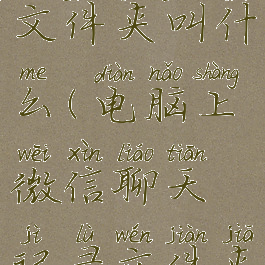 文件夹叫什
me diàn nǎo shàng
么(电脑上
wēi xìn liáo tiān
微信聊天
jì lù wén jiàn jiā
记录文件夹